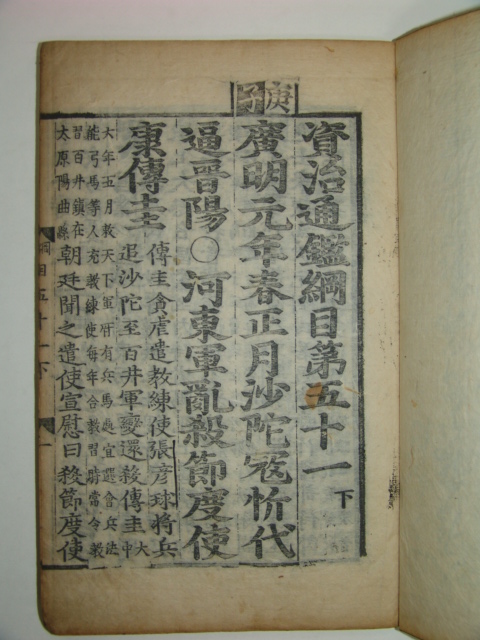 資治通鑑綱目第五十一 下
庚子
廣明元年春正月沙陀寇忻代
逼晉陽○河東軍亂殺節度使
康傳圭
傳圭貪虐遣教練使張彦球將兵
追沙陀至百井軍變還殺傳圭
大
中
六年五月敕天下軍府有兵馬處宜選會兵法
能弓馬等人充教練使每年合教習時常令教
習百井鎮在
太原陽曲縣
朝廷聞之遣使宣慰曰殺節度使
綱目五十一下